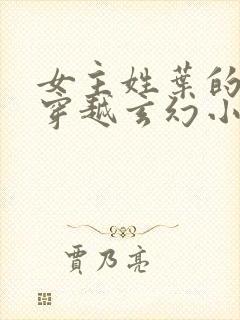 女主姓葉的
穿越玄幻小
賈乃亮